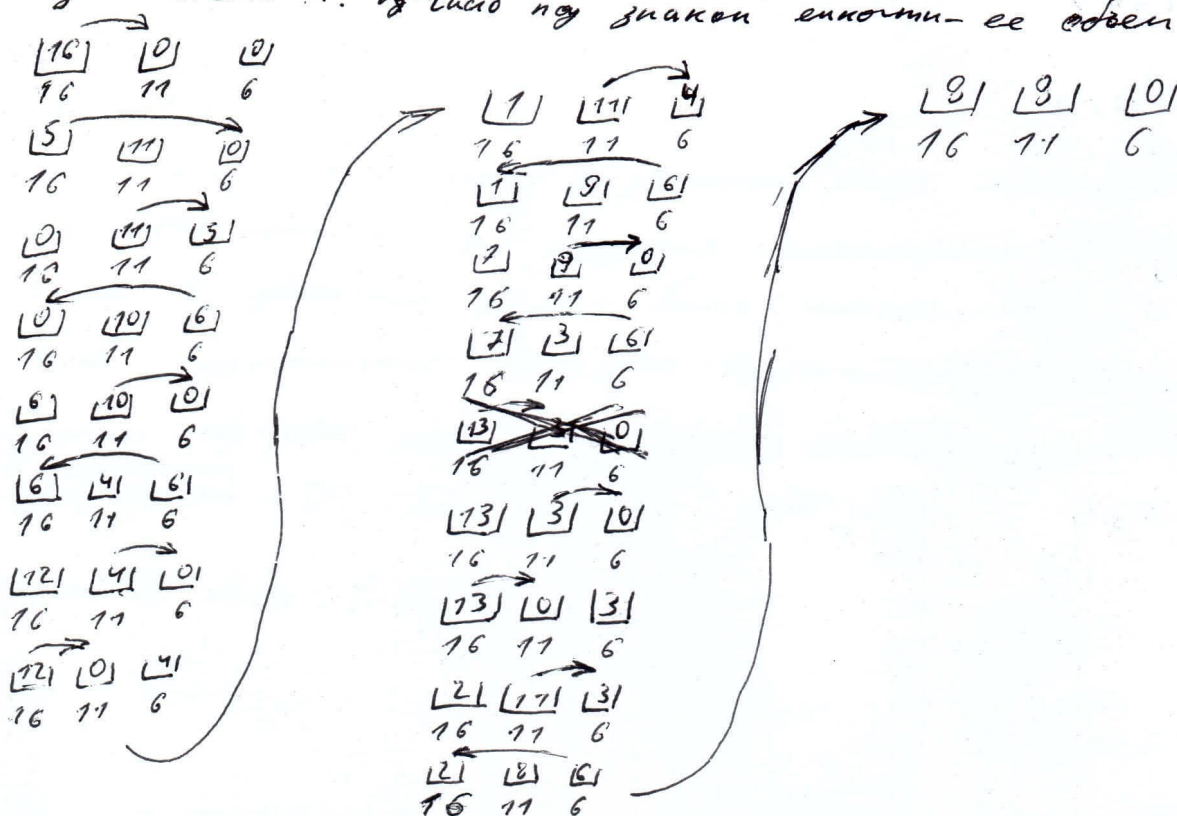 число под знаком емкости - ее объем
16 0 0
16 11 6
5 11 0
16 11 6
0 11 5
16 11 6
0 10 6
16 11 6
6 10 0
16 11 6
6 4 6
16 11 6
12 4 0
16 11 6
12 0 4
16 11 6
1 11 4
16 11 6
1 9 6
16 11 6
7 9 0
16 11 6
7 3 6
16 11 6
13 0
16 11 6
13 3 0
16 11 6
13 0 3
16 11 6
2 11 3
16 11 6
2 8 6
16 11 6
8 8 0
16 11 6